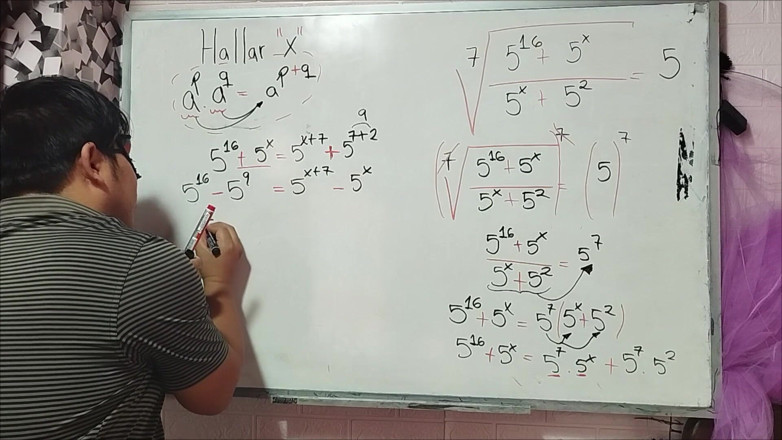 Hallar "X"
a^p . a^q = a^(p+q)
5^16 + 5^x = 5^(x+7) + 5^(7+2) 9
5^16 - 5^9 = 5^(x+7) - 5^x
⁷√((5^16 + 5^x)/(5^x + 5^2)) = 5
(⁷√((5^16 + 5^x)/(5^x + 5^2)))^7 = (5)^7
(5^16 + 5^x)/(5^x + 5^2) = 5^7
5^16 + 5^x = 5^7(5^x + 5^2)
5^16 + 5^x = 5^7 . 5^x + 5^7 . 5^2